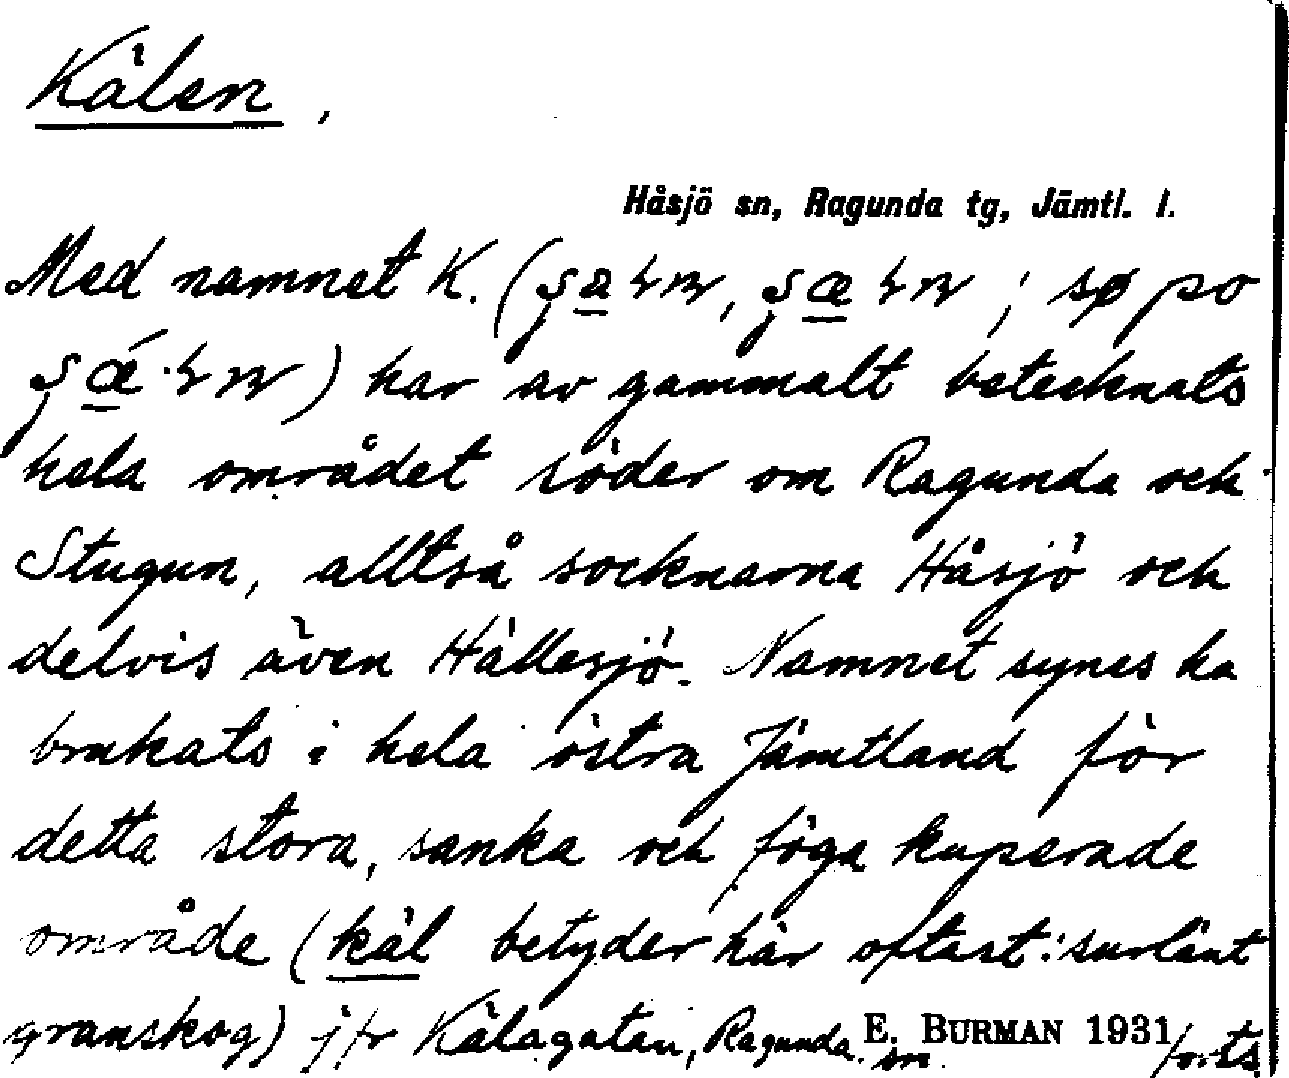 Kälen,
Håsjö sn, Ragunda tg, Jämtl. l.
Med namnet K. (
) har av gammalt betecknats
hela området söder om Ragunda och
Stugun, alltså socknarna Håsjö och
delvis även Hällesjö. Namnet synes ha
brukats i hela östra Jämtland för
detta stora, sanka och föga kuperade
område (käl betyder här oftast: surlänt
granskog) jfr Kälagatan, Ragunda sn. E. BURMAN 1931 forts